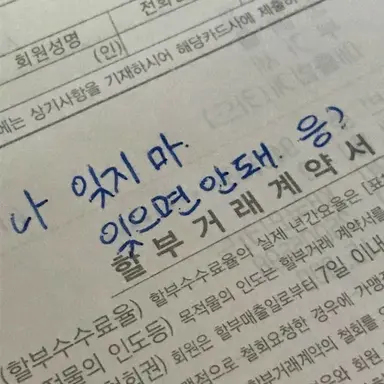 전화
회원성명
(인)
에는 상기사항을 기재하시어 해당카드사에 제출하
나 잊지마.
잊으면안돼. 응?
할부거래계약서
(할부수수료율) 할부수수료율의 실제 년간요율은 (표
적물의 인도등) 목적물의 인도는 할부거래 계약서를
철회권) 회원은 할부매출일로부터 7일 이내
철회요청한 경우에 가맹
할부거래계약의 철회를